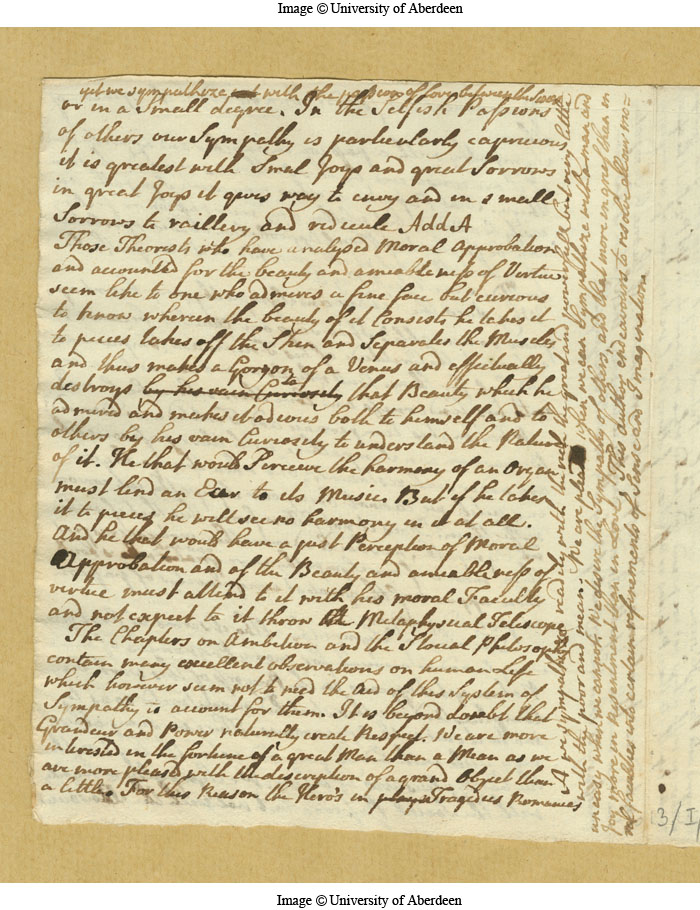 Image © University of Aberdeen
yet we sympathize with the passion of love between the Sexes
or in a small degree. In the Selfish Passions
of others our Sympathy is particularly capricious
it is greatest with Smal Joys and great Sorrows
in great Joys it gives way to envy and in small
Sorrows to raillery and redicule Add A
Those Theorists who have analysed Moral Approbation
and accounted for the beauty and amiableness of Vertue
seem like to one who admires a fine face but curious
to know wherein the beauty of it Consists he takes it
to pieces takes off the Skin and Separates the Muscles
and thus makes a Gorgon of a Venus and effectually
destroys by his vain Curiosity that Beauty which he
admired and makes it odious both to himself and to
others by his vain Curiosity to understand the Nature
of it. He that would Perceive the harmony of an Organ
must lend an Ear to its Music. But if he takes
it to pieces he will see no harmony in it at all.
And he that would have a just Perception of Moral
Approbation and of the Beauty and amiableness of
vertue must attend to it with his moral Faculty
and not expect to it throw the Metaphysical Telescope
The Chapters on Ambition and the Stoical Philosophy
contain many excellent observations on human Life
which however seem not to need the aid of this System of
Sympathy to account for them. It is beyond doubt that
Grandeur and Power naturally create Respect. We are more
interested in the fortune of a great Man than a Mean as we
are more pleased with the description of a grand Object than
a little. For this Reason the Hero's in plays Tragedies Romances
A we sympathize readily with the rich the great and powerfull but very little
with the poor and mean; We are pleased when we can Sympathize with a man and
uneasy when we cannot. We desire the Sympathy of others, and that more in grief than in
joy more in Resentment than in Love. This author endeavours to resolve all our mo=
ral faculties into certain refinements of Sense and Imagination
3/I
Image © University of Aberdeen